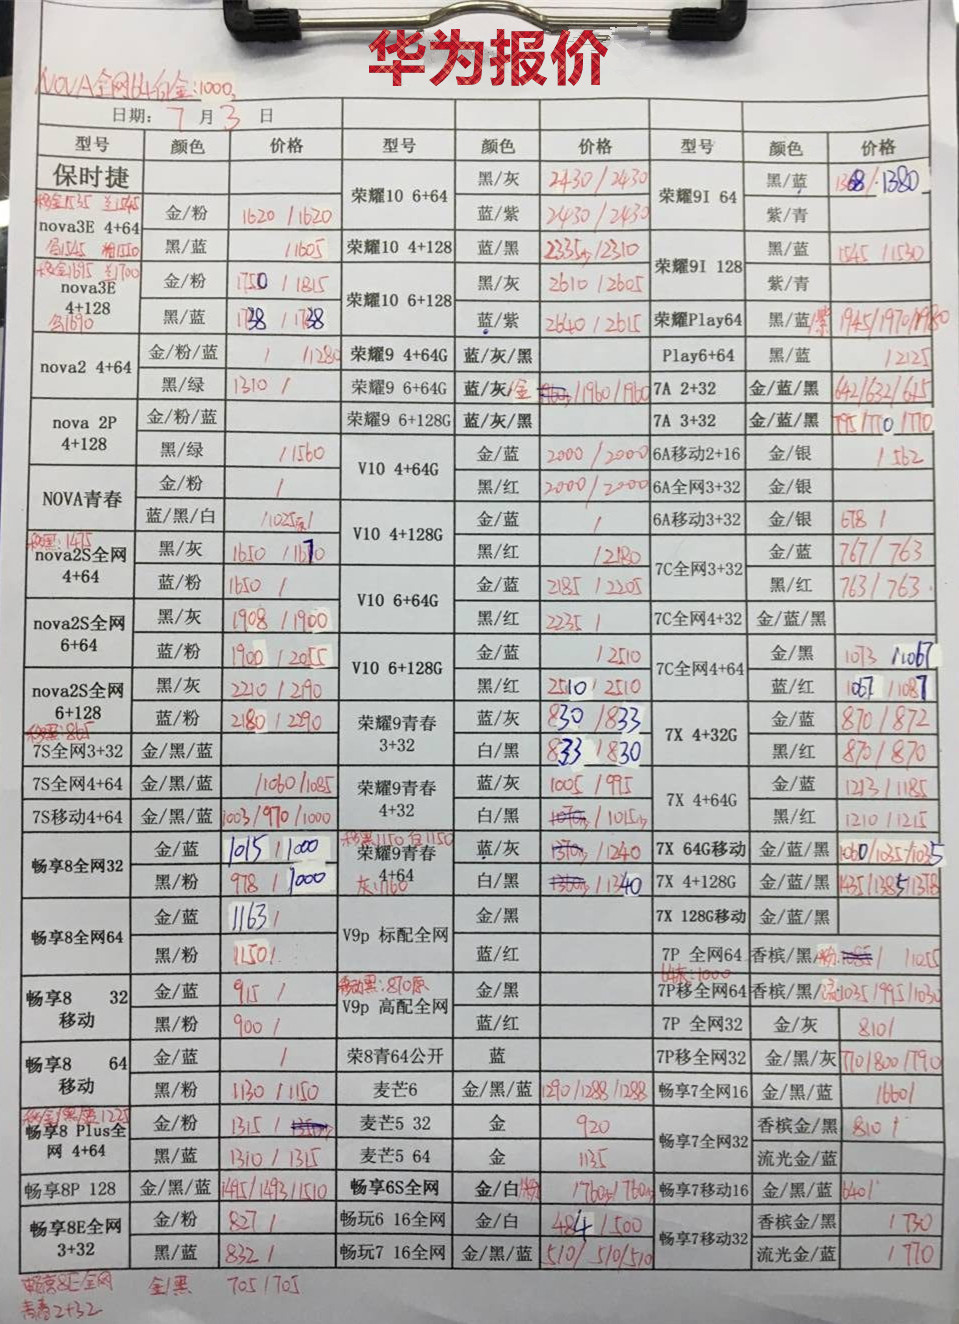 华为报价
NOVA全网64白金:1000
日期: 7 月 3 日
型号 颜色 价格 型号 颜色 价格 型号 颜色 价格
保时捷 荣耀10 6+64 黑/灰 2430/2430 荣耀9I 64 黑/蓝 1368/·1380
nova3E 4+64 金/粉 1620/1620 蓝/紫 2430/2430 紫/青
黑/蓝 /1605 荣耀10 4+128 蓝/黑 2335/2310 荣耀9I 128 黑/蓝 1545/1530
nova3E 4+128 金/粉 1750/1815 荣耀10 6+128 黑/灰 2610/2605 紫/青
黑/蓝 1738/1738 蓝/紫 2640/2615 荣耀Play64 黑/蓝/紫 1945/1970/1980
nova2 4+64 金/粉/蓝 / /1280 荣耀9 4+64G 蓝/灰/黑 Play6+64 黑/蓝 /2125
黑/绿 1310/ 荣耀9 6+64G 蓝/灰/金 /1960/1960 7A 2+32 金/蓝/黑 642/632/615
nova 2P 4+128 金/粉/蓝 荣耀9 6+128G 蓝/灰/黑 7A 3+32 金/蓝/黑 795/770/770
黑/绿 /1560 V10 4+64G 金/蓝 2000/2000 6A移动2+16 金/银 /562
NOVA青春 金/粉 / 黑/红 2000/2000 6A全网3+32 金/银
蓝/黑/白 /1025/ V10 4+128G 金/蓝 / 6A移动3+32 金/银 678/
nova2S全网 4+64 黑/灰 1650/1670 黑/红 /2180 7C全网3+32 金/蓝 767/763
蓝/粉 1650/ V10 6+64G 金/蓝 2185/2205 黑/红 763/763
nova2S全网 6+64 黑/灰 1908/1900 黑/红 2235/ 7C全网4+32 金/蓝/黑
蓝/粉 1900/2055 V10 6+128G 金/蓝 /2510 7C全网4+64 金/黑 1073/1067
nova2S全网 6+128 黑/灰 2210/2190 黑/红 2510/2510 蓝/红 1067/1087
蓝/粉 2180/2290 荣耀9青春 3+32 蓝/灰 830/833 7X 4+32G 金/蓝 870/872
7S全网3+32 金/黑/蓝 白/黑 833/830 黑/红 870/870
7S全网4+64 金/黑/蓝 /1060/1085 荣耀9青春 4+32 蓝/灰 1005/995 7X 4+64G 金/蓝 1213/1185
7S移动4+64 金/黑/蓝 1003/970/1000 白/黑 /1015 黑/红 1210/1215
畅享8全网32 金/蓝 1015/1000 荣耀9青春 4+64 蓝/灰 /1240 7X 64G移动 金/蓝/黑 1060/1035/1035
黑/粉 978/1000 白/黑 /1340 7X 4+128G 金/蓝/黑 1435/1385/1378
畅享8全网64 金/蓝 1163/ V9p 标配全网 金/黑 7X 128G移动 金/蓝/黑
黑/粉 1150/ 蓝/红 7P 全网64 香槟/黑/粉 / /1055
畅享8 32 移动 金/蓝 915/ V9p 高配全网 金/黑 7P移全网64 香槟/黑/ 1035/995/1030
黑/粉 900/ 蓝/红 7P 全网32 金/灰 810/
畅享8 64 移动 金/蓝 / 荣8青64公开 蓝 7P移全网32 金/黑/灰 770/800/790
黑/粉 1130/1150 麦芒6 金/黑/蓝 1290/1288/1288 畅享7全网16 金/黑/蓝 /660/
畅享8 Plus全网 4+64 金/粉 1315/ 麦芒5 32 金 920 畅享7全网32 香槟金/黑 810/
黑/蓝 1310/1315 麦芒5 64 金 1135 流光金/蓝
畅享8P 128 金/黑/蓝 1495/1493/1510 畅享6S全网 金/白/粉 /760/760 畅享7移动16 金/黑/蓝 640/
畅享8E全网 3+32 金/粉 827/ 畅玩6 16全网 金/白 484/500 畅享7移动32 香槟金/黑 /730
黑/蓝 832/ 畅玩7 16全网 金/黑/蓝 510/510/510 流光金/蓝 /770
畅享8E全网 金/黑 705/705
青春2+32